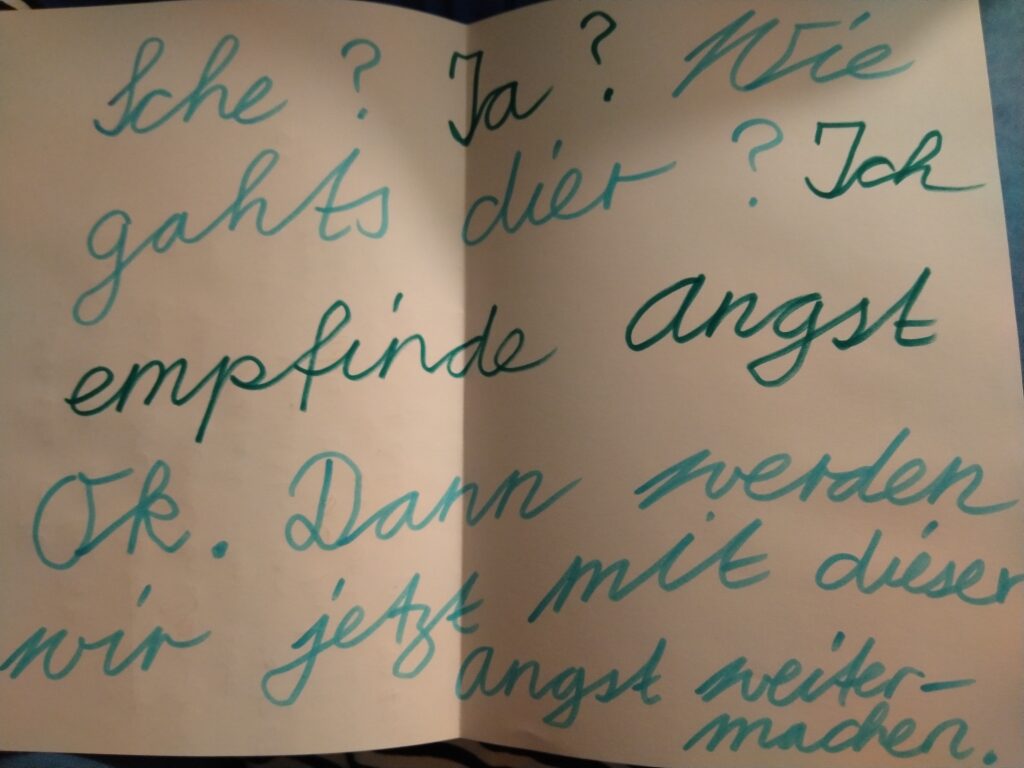 Sche? Ja? Wie
gahts dier? Ich
empfinde angst
Ok. Dann werden
wir jetzt mit dieser
angst weiter-
machen.